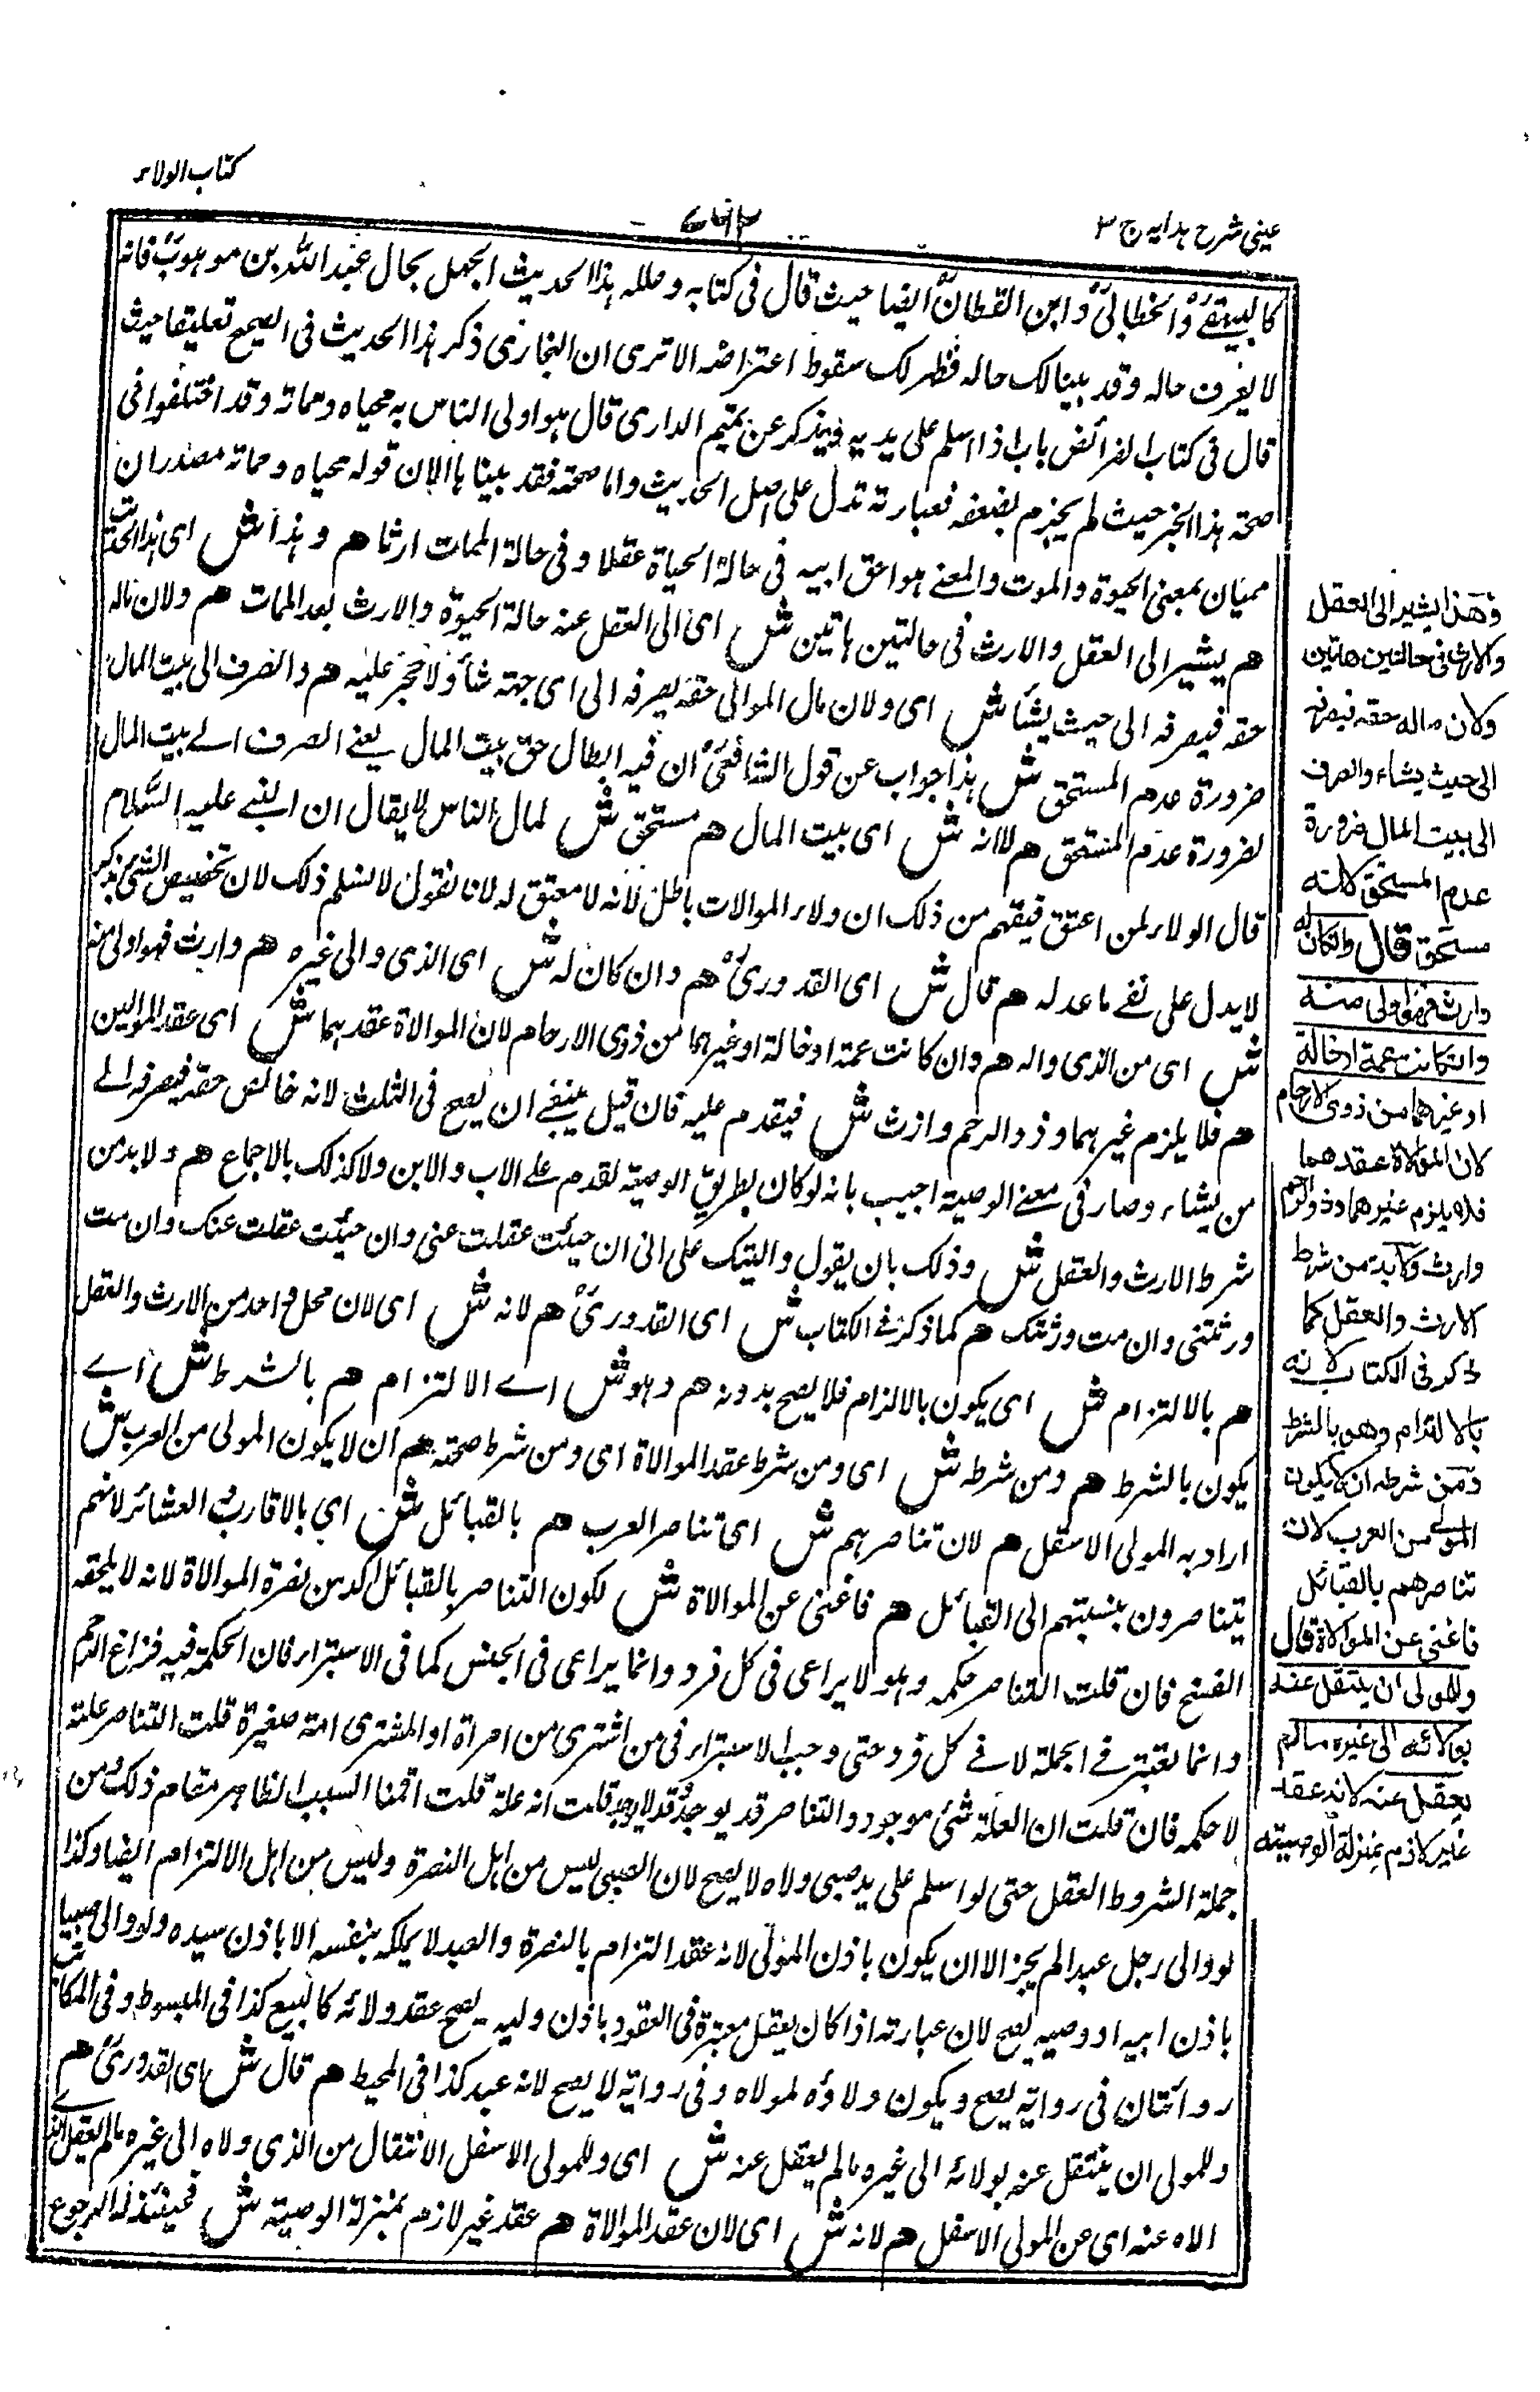 كتاب الولاء
عينى شرح هدايه ج ٣
٦٦٣
كالبيهقے والخطابى وابن القطان ايضا حيث قال فى كتابه وعلله هذا الحديث الجهل بحال عبد الله بن موهوب فانه
لا يعرف حاله وقد بينا لك حاله فظهر لك سقوط اعتراضه الا ترى ان البخارى ذكر هذا الحديث فى الصحيح تعليقا حيث
قال فى كتاب الفرائض باب اذا اسلم على يديه ويذكر عن تميم الدارى قال هو اولى الناس به محياه ومماته وقد اختلفوا فى
صحة هذا الخبر حيث لم يجزم بضعفه فعبارته تدل على اصل الحديث واما صحته فقد بيناها الان قوله محياه ومماته مصدران
ميميان بمعنى الحيوة والموت والمعنے هو احق ابيه فى حالة الحياة عقلا وفى حالة الممات ارثا هم وهذا ش اى هذا الحديث
هم يشير الى العقل والارث فى حالتين هاتين ش اى الى العقل عنه حالة الحيوة والارث بعد الممات هم ولان ماله
حقه فيصرفه الى حيث يشأ ش اى ولان مال الموالى حقه يصرفه الى اى جهته شأ ولا حجر عليه هم والصرف الى بيت المال
ضرورة عدم المستحق ش هذا جواب عن قول الشافعى ان فيه ابطال حق بيت المال يعنے الصرف الے بيت المال
لضرورة عدم المستحق هم لا انه ش اى بيت المال هم مستحق ش لمال الناس لا يقال ان النبے عليه السلام
قال الولاء لمن اعتق فيفهم من ذلك ان ولاء الموالات باطل لانه لا معتق له لانا نقول لا نسلم ذلك لان تخصيص الشئ بذكر
لا يدل على نفے ما عدله هم قال ش اى القدورى هم وان كان له ش اى الذى والى غيره هم وارث فهو اولى منه
ش اى من الذى والاه هم وان كانت عمة او خالة او غيرهما من ذوى الارحام لان الموالاة عقدهما ش اى عقد الموالين
هم فلا يلزم غيرهما وذو الرحم وارث ش فيقدم عليه فان قيل ينبغے ان يصح فى الثلث لانه خالص حقه فيصرفه الے
من يشاء وصار فى معنے الوصية اجيب بانه لو كان بطريق الوصية لقدم علے الاب والابن ولا كذلك بالاجماع هم ولا بد من
شرط الارث والعقل ش وذلك بان يقول واليتك على انى ان جنيت عقلت عنى وان جنيت عقلت عنك وان مت
ورثتنى وان مت ورثتك هم كما ذكر فے الكتاب ش اى القدورى هم لانه ش اى لان محل واحد من الارث والعقل
هم بالالتزام ش اى يكون بالالزام فلا يصح بدونه هم وهو ش اے الالتزام هم بالشرط ش اے
يكون بالشرط هم ومن شرطه ش اى ومن شرط عقد الموالاة اى ومن شرط صحته هم ان لا يكون المولى من العرب ش
اراد به المولى الاسفل هم لان تناصرهم ش اى تناصر العرب هم بالقبائل ش اي بالاقارب والعشائر لانهم
يتناصرون بنسبتهم الى القبائل هم فاغنى عن الموالاة ش لكون التناصر بالقبائل اكد من نصرة الموالاة لانه لا يلحقه
الفسخ فان قلت التناصر حكمه وهو لا يراعى فى كل فرد وانما يراعى فى الجنس كما فى الاستبراء فان الحكمة فيه فراغ الرحم
وانما تعتبر فے الجملة لا فے كل فرد حتى وجب الاستبراء فى من اشترى من امرأة او المشترى امة صغيرة قلت التناصر علته
لا حكمه فان قلت ان العلة شئ موجود والتناصر قد يوجد وقد لا يوجد قلت انه علة قلت اقمنا السبب الظاهر مقام ذلك ومن
جملة الشروط العقل حتى لو اسلم على يد صبى ولاه لا يصح لان الصبى ليس من اهل النصرة وليس من اهل الالتزام ايضا وكذا
لو والى رجل عبدا لم يجز الا ان يكون باذن المولى لانه عقد التزام بالنصرة والعبد لا يملكه بنفسه الا باذن سيده ولو والى صبيا
باذن ابيه او وصيه يصح لان عبارته اذا كان يعقل معتبرة فى العقود باذن وليه يصح عقد ولائه كالبيع كذا فى المبسوط وفى المكاتب
روائتان فى رواية يصح ويكون ولاؤه لمولاه وفى رواية لا يصح لانه عبد كذا فى المحيط هم قال ش اى القدورى هم
وللمولى ان ينتقل عنه بولائه الى غيره مالم يعقل عنه ش اى وللمولى الاسفل الانتقال من الذى ولاه الى غيره مالم يعقل الذے
الاه عنه اى عن المولى الاسفل هم لانه ش اى لان عقد الموالاة هم عقد غير لازم بمنزلة الوصية ش فحينئذ له الرجوع
وهذا يشير الى العقل
والارث فى حالتين هاتين
ولان ماله حقه فيصرفه
الى حيث يشاء والصرف
الى بيت المال ضرورة
عدم المستحق لا انه
مستحق قال وان كان له
وارث فهو اولى منه
وان كانت عمة او خالة
او غيرهما من ذوى الارحام
لان الموالاة عقدهما
فلا يلزم غيرهما وذو الرحم
وارث ولا بد من شرط
الارث والعقل كما
ذكر فى الكتاب لانه
بالالتزام وهو بالشرط
ومن شرطه ان لا يكون
المولے من العرب لان
تناصرهم بالقبائل
فاغنى عن الموالاة قال
وللمولى ان ينتقل عنه
بولائه الى غيره مالم
يعقل عنه لانه عقد
غير لازم بمنزلة الوصية